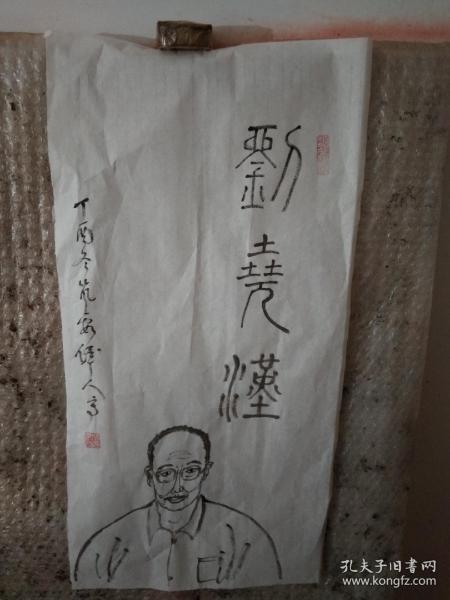 劉堯漢
丁酉冬筑安
人
孔夫子旧书网
www.kongfz.com